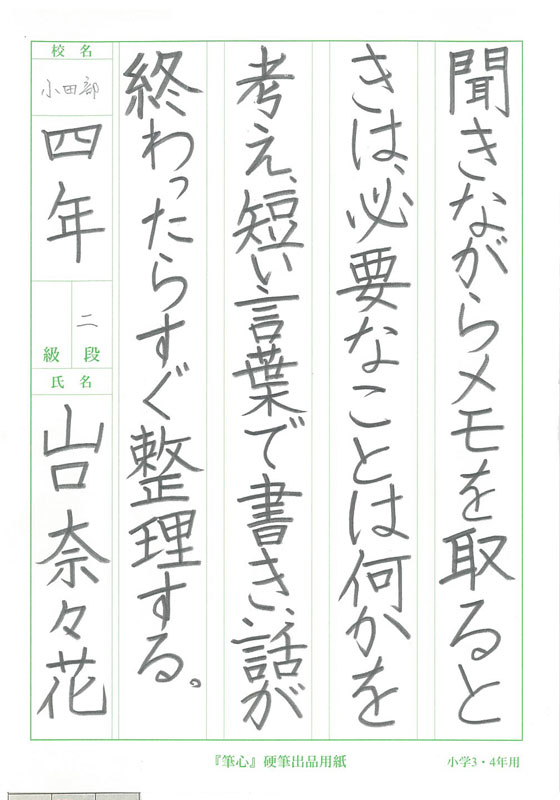 聞きながらメモを取ると
きは、必要なことは何かを
考え、短い言葉で書き、話が
終わったらすぐ整理する。
校名
小田部
四年
二
段
級
氏名
山口奈々花
『筆心』硬筆出品用紙
小学3・4年用